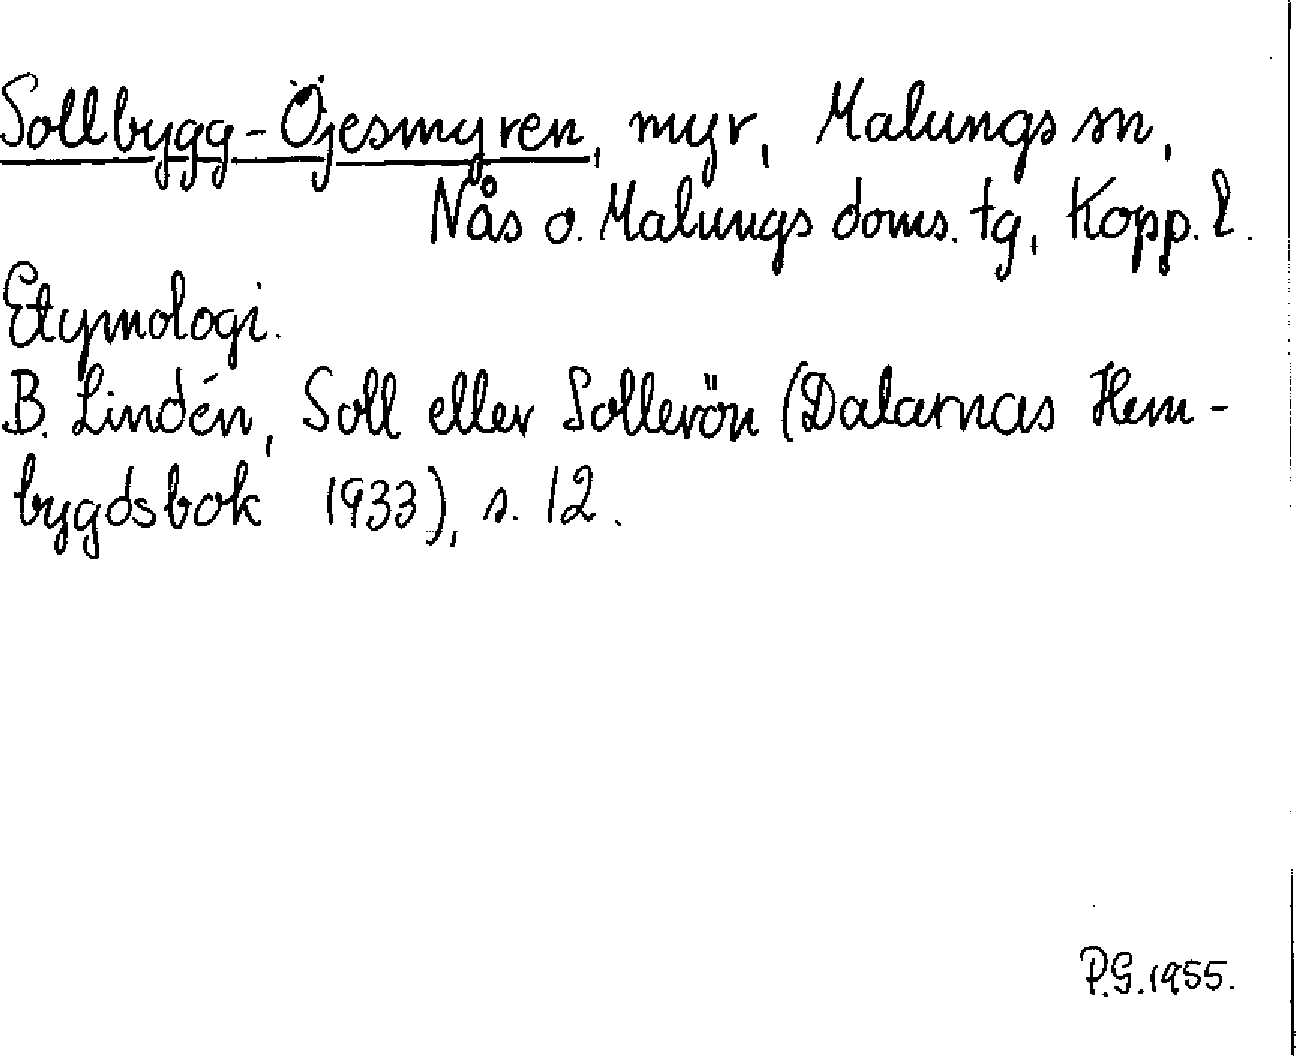 Sollbygg-Öjesmyren, myr, Malungs sn,
Nås o. Malungs doms. tg, Kopp. l.
Etymologi.
B. Lindén, Soll eller Sollerön (Dalarnas Hem-
bygdsbok 1933), s. 12.
P.G. 1955.